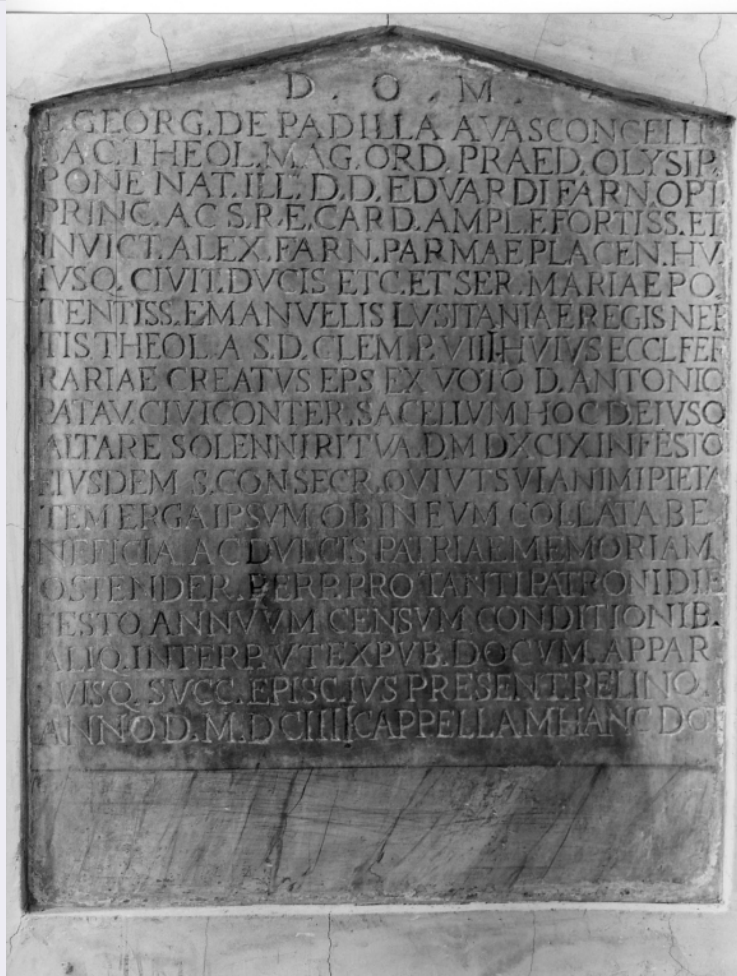 D . O . M .
GEORG. DE PADILLA A VASCONCELLI
SAC. THEOL. MAG. ORD. PRAED. OLYSIP.
PONE NAT. ILL. D.D. EDVARDI FARN. OPT.
PRINC. AC S.R.E. CARD. AMPL. F. FORTISS. ET
INVICT. ALEX. FARN. PARMAE PLACEN. HV
IVSQ. CIVIT. DVCIS ETC. ET SER. MARIAE PO.
TENTISS. EMANVELIS LVSITANIAE REGIS NEP
TIS THEOL. A S.D. CLEM. P. VIII. HVIVS ECCL. FER
RARIAE CREATVS EPS EX VOTO D. ANTONIO
PATAV. CIVI CONTER. SACELLVM HOC D. EIVSQ
ALTARE SOLENNI RITV A. D M DXCIX. IN FESTO
EIVSDEM S. CONSECR. QVI VT SVI ANIMI PIETA
TEM ERGA IPSVM OB IN EVM COLLATA BE.
NEFICIA AC DVLCIS PATRIAE MEMORIAM
OSTENDER. PERP. PRO TANTI PATRONI DIE
FESTO ANNVVM CENSVM CONDITIONIB.
ALIQ. INTERP. VT EX PVB. DOCVM. APPAR
SVISQ. SVCC. EPISC. IVS PRESENT. RELINQ.
ANNO D. M. DCIIII CAPPELLAM HANC DOT